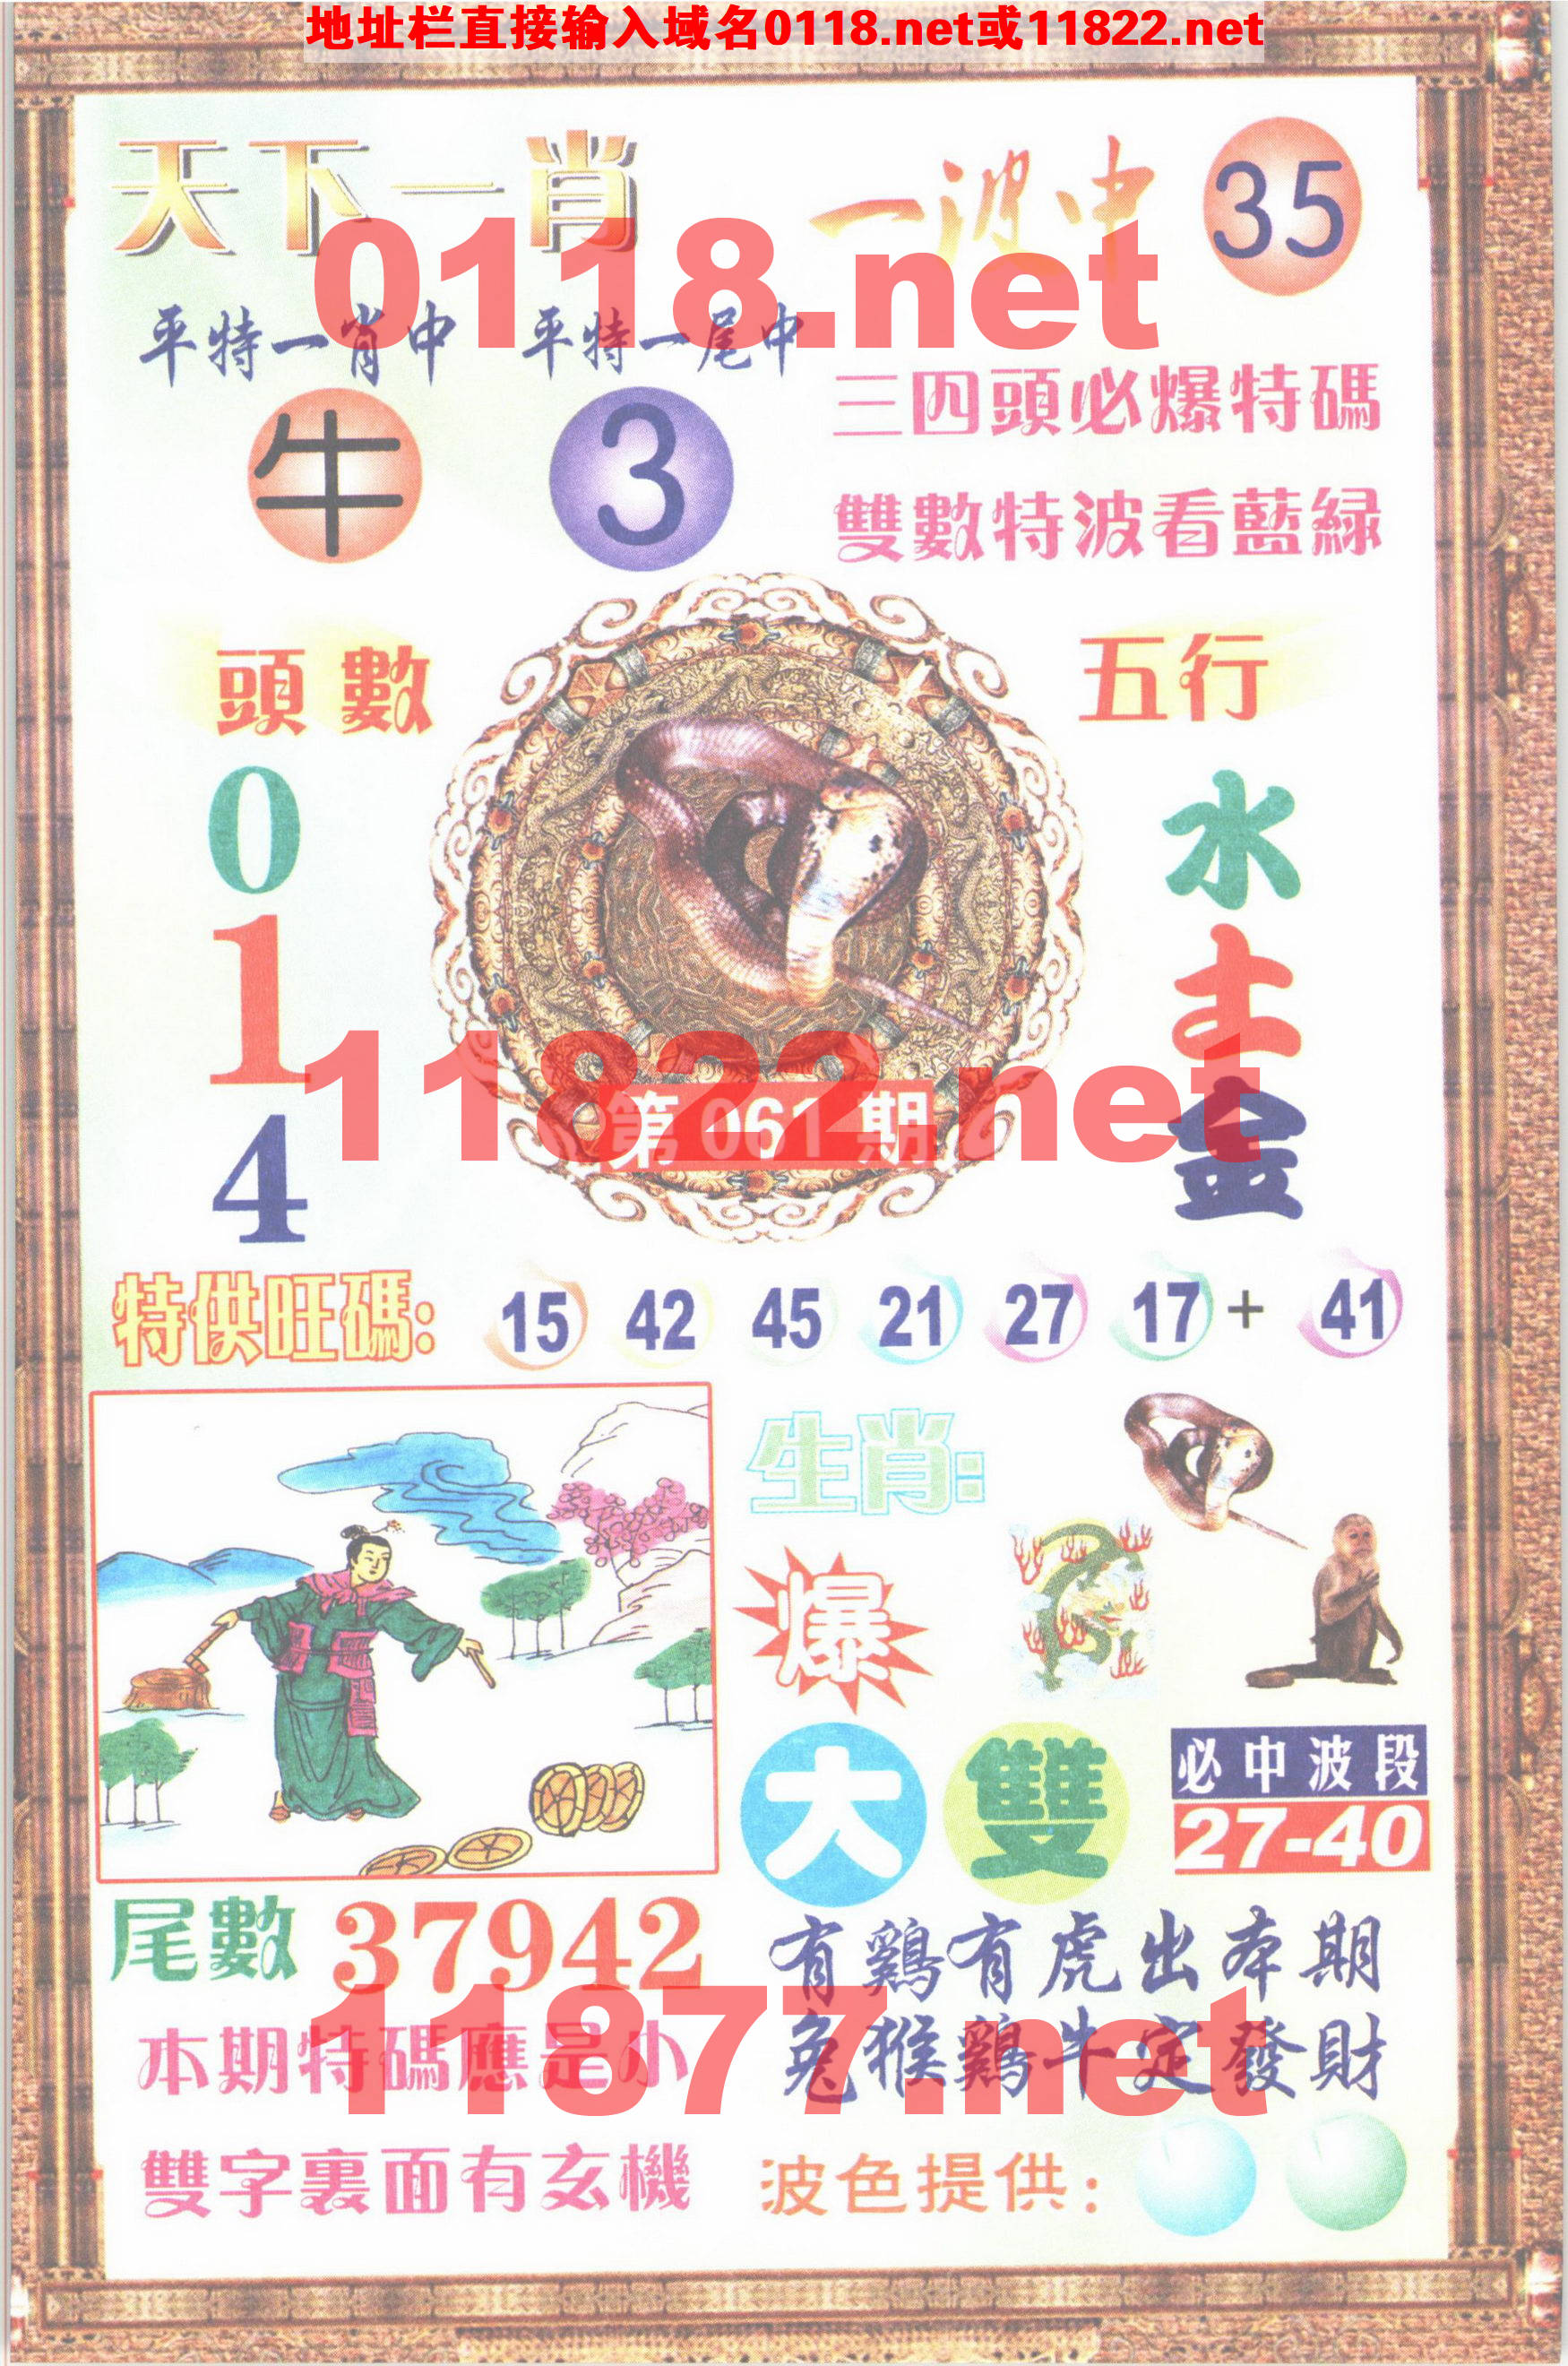 地址栏直接输入域名0118.net或11822.net
天下一肖
一波中 35
0118.net
平特一肖中 平特一尾中
牛 3
三四頭必爆特碼
雙數特波看藍緑
頭數
五行
0
1
4
水
土
金
11822.net
第061期
特供旺碼: 15 42 45 21 27 17 + 41
生肖:
爆
大 雙
必中波段
27-40
尾數 37942
有鷄有虎出本期
11877.net
本期特碼應是小
兔猴鷄牛定發財
雙字裏面有玄機
波色提供: